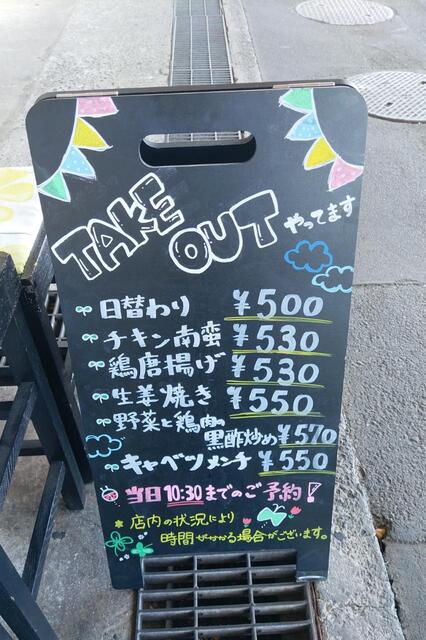 TAKE OUT やってます
日替わり ¥500
チキン南蛮 ¥530
鶏唐揚げ ¥530
生姜焼き ¥550
野菜と鶏肉の
黒酢炒め ¥570
キャベツメンチ ¥550
当日10:30までのご予約!
*店内の状況により
時間がかかる場合がございます。